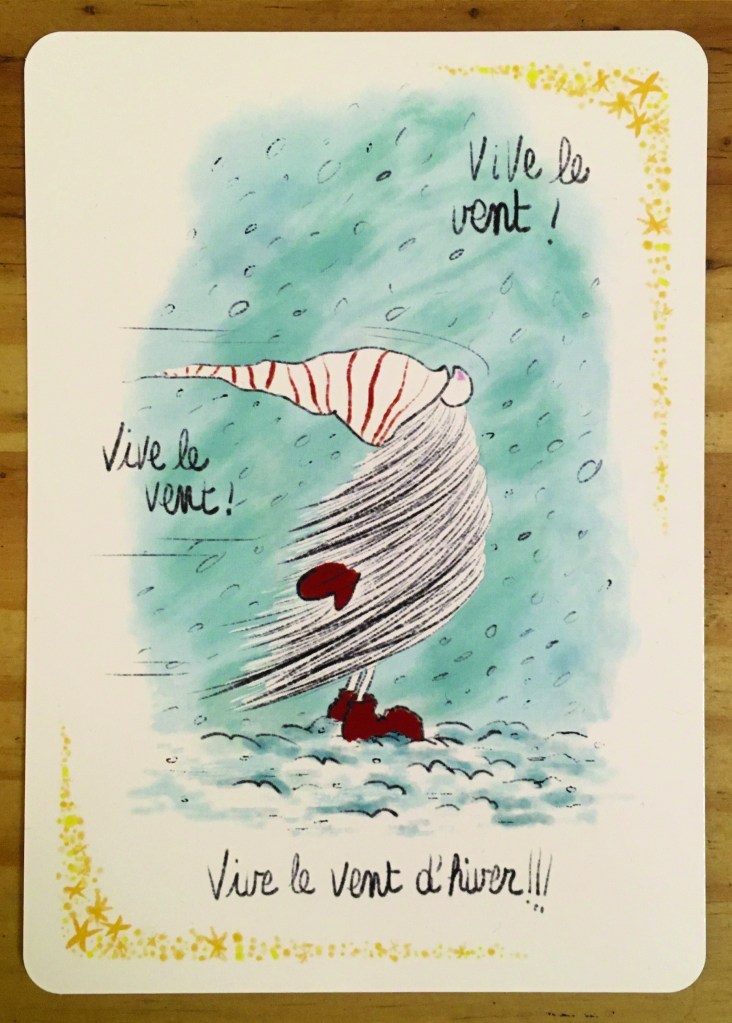 Vive le
vent !
Vive le
vent !
Vive le vent d'hiver !!!